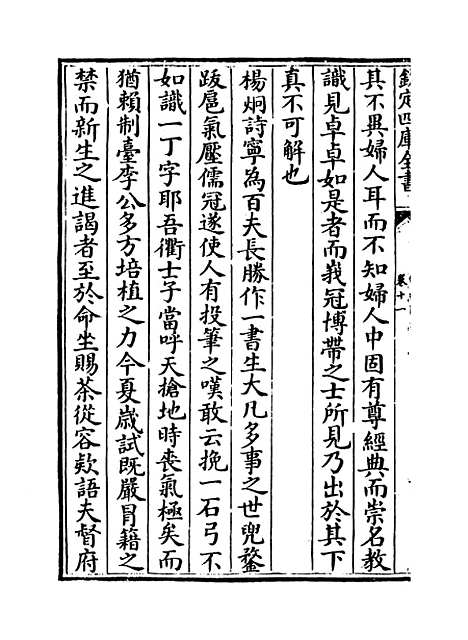 欽定四庫全書
卷十一
其不異婦人耳而不知婦人中固有尊經典而崇名教
識見卓卓如是者而峩冠博帶之士所見乃出於其下
真不可解也
楊炯詩寧為百夫長勝作一書生大凡多事之世兜鍪
跋扈氣壓儒冠遂使人有投筆之嘆敢云挽一石弓不
如識一丁字耶吾衢士子當呼天搶地時喪氣極矣而
猶賴制臺李公多方培植之力今夏歲試既嚴冐籍之
禁而新生之進謁者至於命坐賜茶從容欵語夫督府